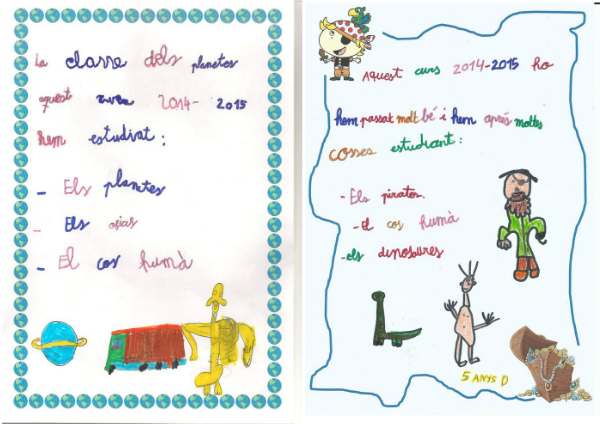 La classe dels planetes
aquest curs 2014-2015
hem estudiat:
- Els planetes
- Els
- El cos humà
Aquest curs 2014-2015 ho
hem passat molt bé i hem aprés moltes
cosses estudiant:
- Els pirates.
- el cos humà
- els dinosaures
5 ANYS D